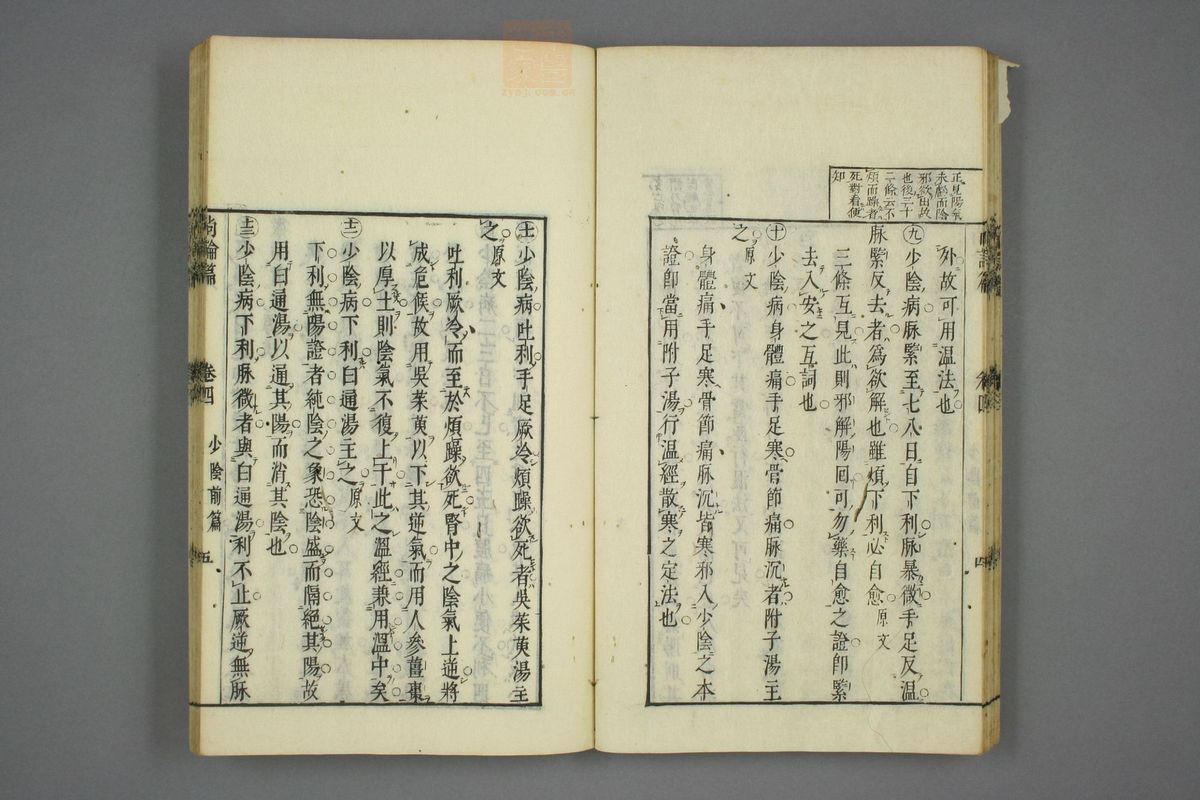 正見陽氣
未虧而陰
邪欲出故
也後二十
二條云不
煩而躁者
死對看便
知
外故可用温法也
㊈少陰病脉緊至七八日自下利脉暴微手足反温
脉緊反去者爲欲解也雖煩下利必自愈原文
三條互見此則邪解陽回可勿藥自愈之證卽緊
去入安之互詞也
㊉少陰病身體痛手足寒骨節痛脉沉者附子湯主
之原文
身體痛手足寒骨節痛脉沉皆寒邪入少陰之本
證卽當用附子湯行温經散寒之定法也
十一少陰病吐利手足厥冷煩躁欲死者吳茱萸湯主
之原文
吐利厥冷而至於煩躁欲死腎中之陰氣上逆將
成危候故用吳茱萸以下其逆氣而用人參薑棗
以厚土則陰氣不復上干此之溫經兼用溫中矣
十二少陰病下利白通湯主之原文
下利無陽證者純陰之象恐陰盛而隔絕其陽故
用白通湯以通其陽而消其陰也
十三少陰病下利脉微者與白通湯利不止厥逆無脉
尚論篇 卷四 少陰前篇 五